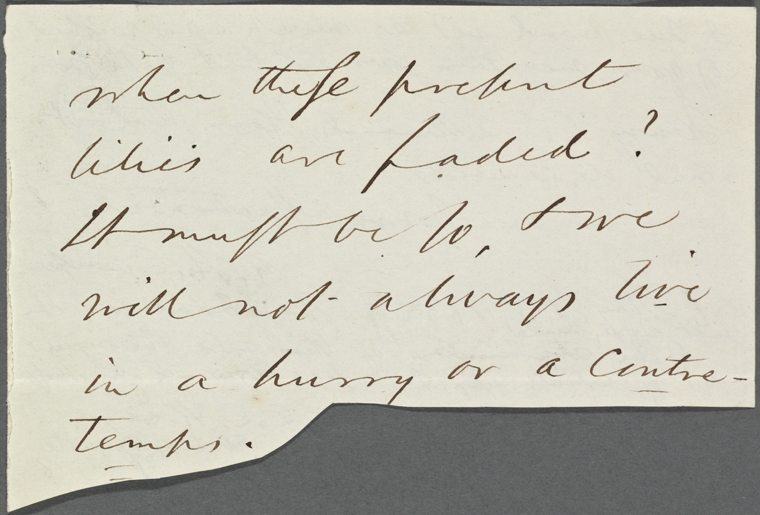 when these present
lilies are faded?
It must be so, & we
will not always live
in a hurry or a Contre-
temps.